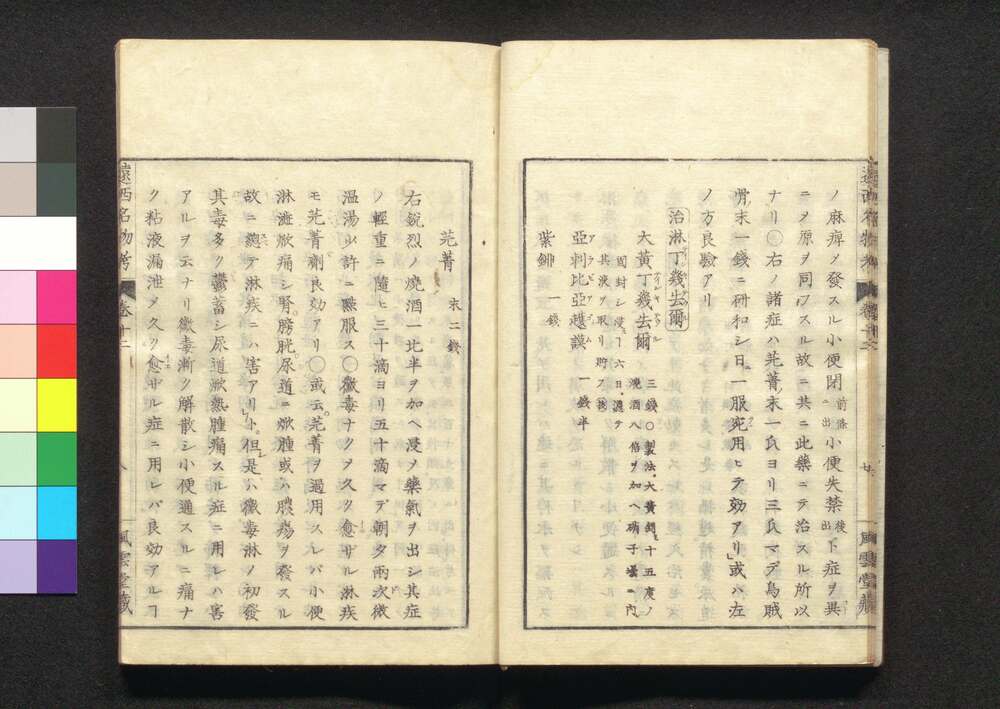 ノ麻痺メ發スル小便閉前條ニ出小便失禁後ニ出下症ヲ異
ニヲ原ヲ同フスル故ニ共ニ此藥ニテ治スル所以
ナリ〇右ノ諸症ハ芫菁末一氏ヨリ三氏マデ烏賊
骨末一錢ニ研和シ日一服兜用ヒテ効アリ或ハ左
ノ方良驗アリ
治淋丁幾去爾
大黃丁幾去爾 三錢〇製法大黃銼十五度ノ
燒酒八倍ヲ加ヘ硝子壜ニ內
固封シ浸ヿ六日濾テ
其液ヲ取リ貯フ
亞剌比亞護謨 一錢半
アラビアゴム
紫鉚 一錢
芫菁 末二錢
右銳烈ノ燒酒一比半ヲ加ヘ浸メ藥氣ヲ出シ其症
ノ輕重ニ隨ヒ三十滴ヨリ五十滴マデ朝夕兩次微
溫湯少許ニ點服ス〇黴毒ナクヲ久ク愈ザル淋疾
モ芫菁劑良効アリ〇或云芫菁ヲ過用スレバ小便
淋瀝焮痛シ腎膀胱尿道ニ焮腫或ハ膿瘍ヲ發スル
故ニ總テ淋疾ニハ害アリト但是ハ黴毒淋ノ初發
其毒多ク鬱蓄シ尿道焮熱腫痛スル症ニ用レハ害
アルヲ云ナリ黴毒漸ク解散シ小便通スルニ痛ナ
ク粘液漏泄メ久ク愈ザル症ニ用レバ良効アルヿ
遠西名物考 卷十二 八 風雲堂藏